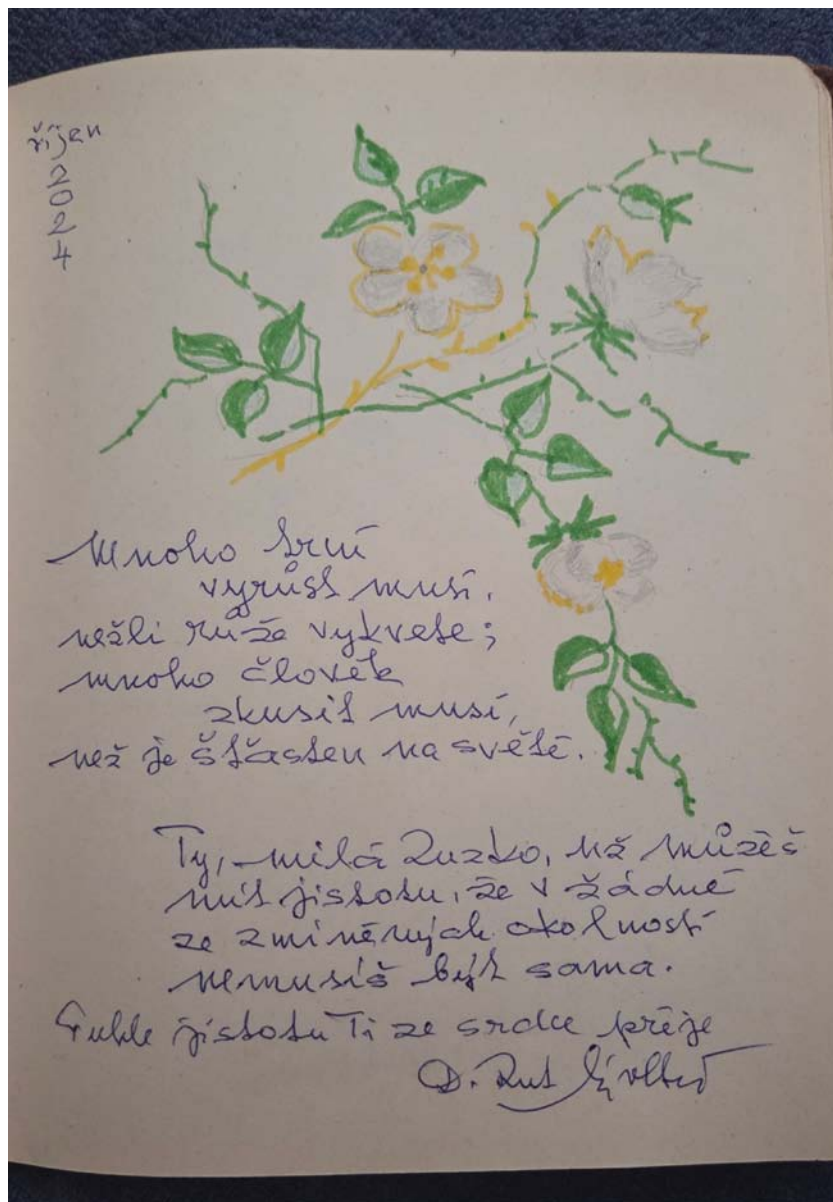 říjen
2
0
2
4
Mnoho trní
vyrůst musí,
nežli růže vykvete;
mnoho člověk
zkusit musí,
než je šťasten na světě.
Ty, milá Zuzko, už můžeš
mít jistotu, že v žádné
ze zmíněných okolností
nemusíš být sama.
Tuhle jistotu Ti ze srdce přeje
D. Rut